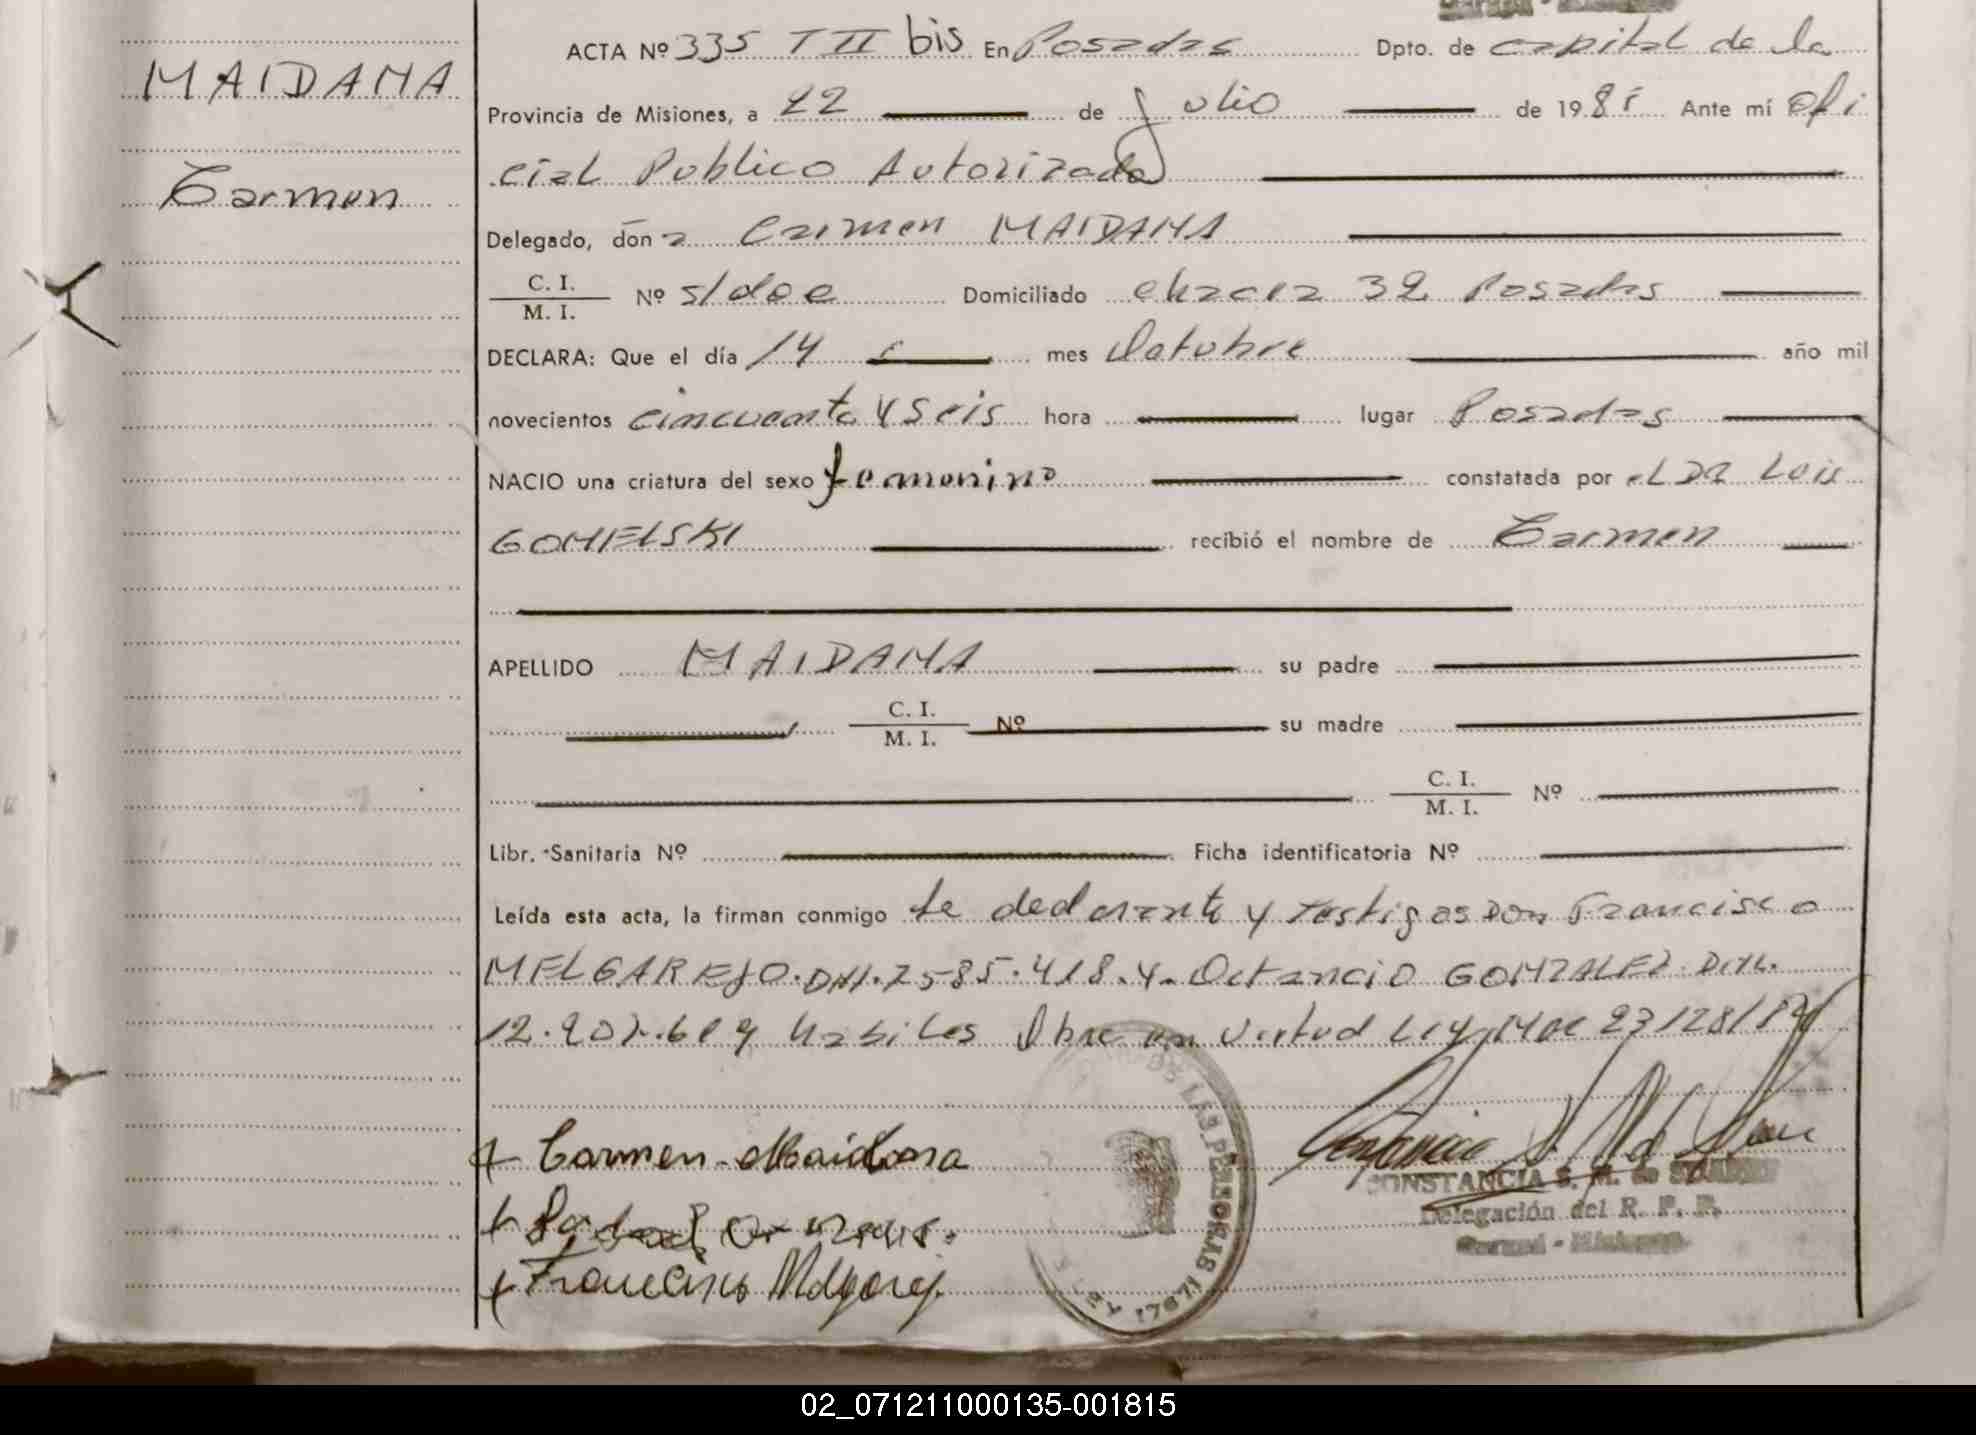 MAIDANA
Carmen
ACTA Nº 335 T II bis En Posadas Dpto. de capital de la
Provincia de Misiones, a 22 de julio de 198 Ante mí Ofi
cial Publico Autorizada
Delegado, don a Carmen MAIDANA
C. I.
M. I. Nº s/doc Domiciliado chacra 32 Posadas
DECLARA: Que el día 14 mes Octubre año mil
novecientos cincuenta y seis hora lugar Posadas
NACIO una criatura del sexo femenino constatada por el DR Luis
GOMELSKI recibió el nombre de Carmen
APELLIDO MAIDANA su padre
C. I.
M. I. Nº su madre
C. I.
M. I. Nº
Libr. Sanitaria Nº Ficha identificatoria Nº
Leída esta acta, la firman conmigo la declarante y testigos Don Francisco
MELGAREJO. DNI. 7585.418. y. GONZALEZ. DNI.
12.207. habiles en virtud Ley
Carmen Maidana
Francisco Melgarej
CONSTANCIA S. M. de
Delegación del R. P. P.
DE LAS PERSONAS
02_071211000135-001815